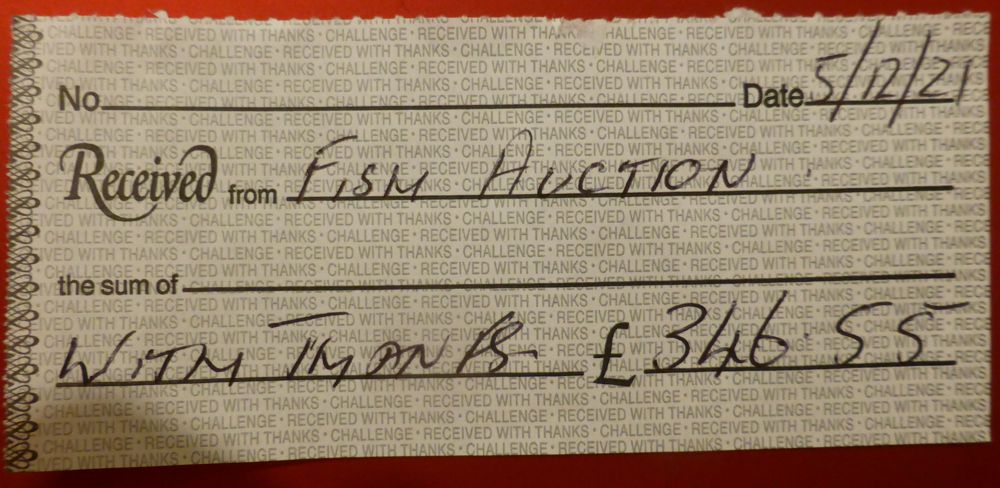 No. Date 5/12/21
Received from FISH AUCTION
the sum of
WITH THANKS £346.55